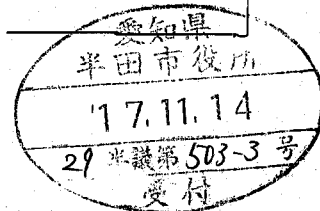 愛知県
半田市役所
'17.11.14
29 半議第 503-3 号
受付